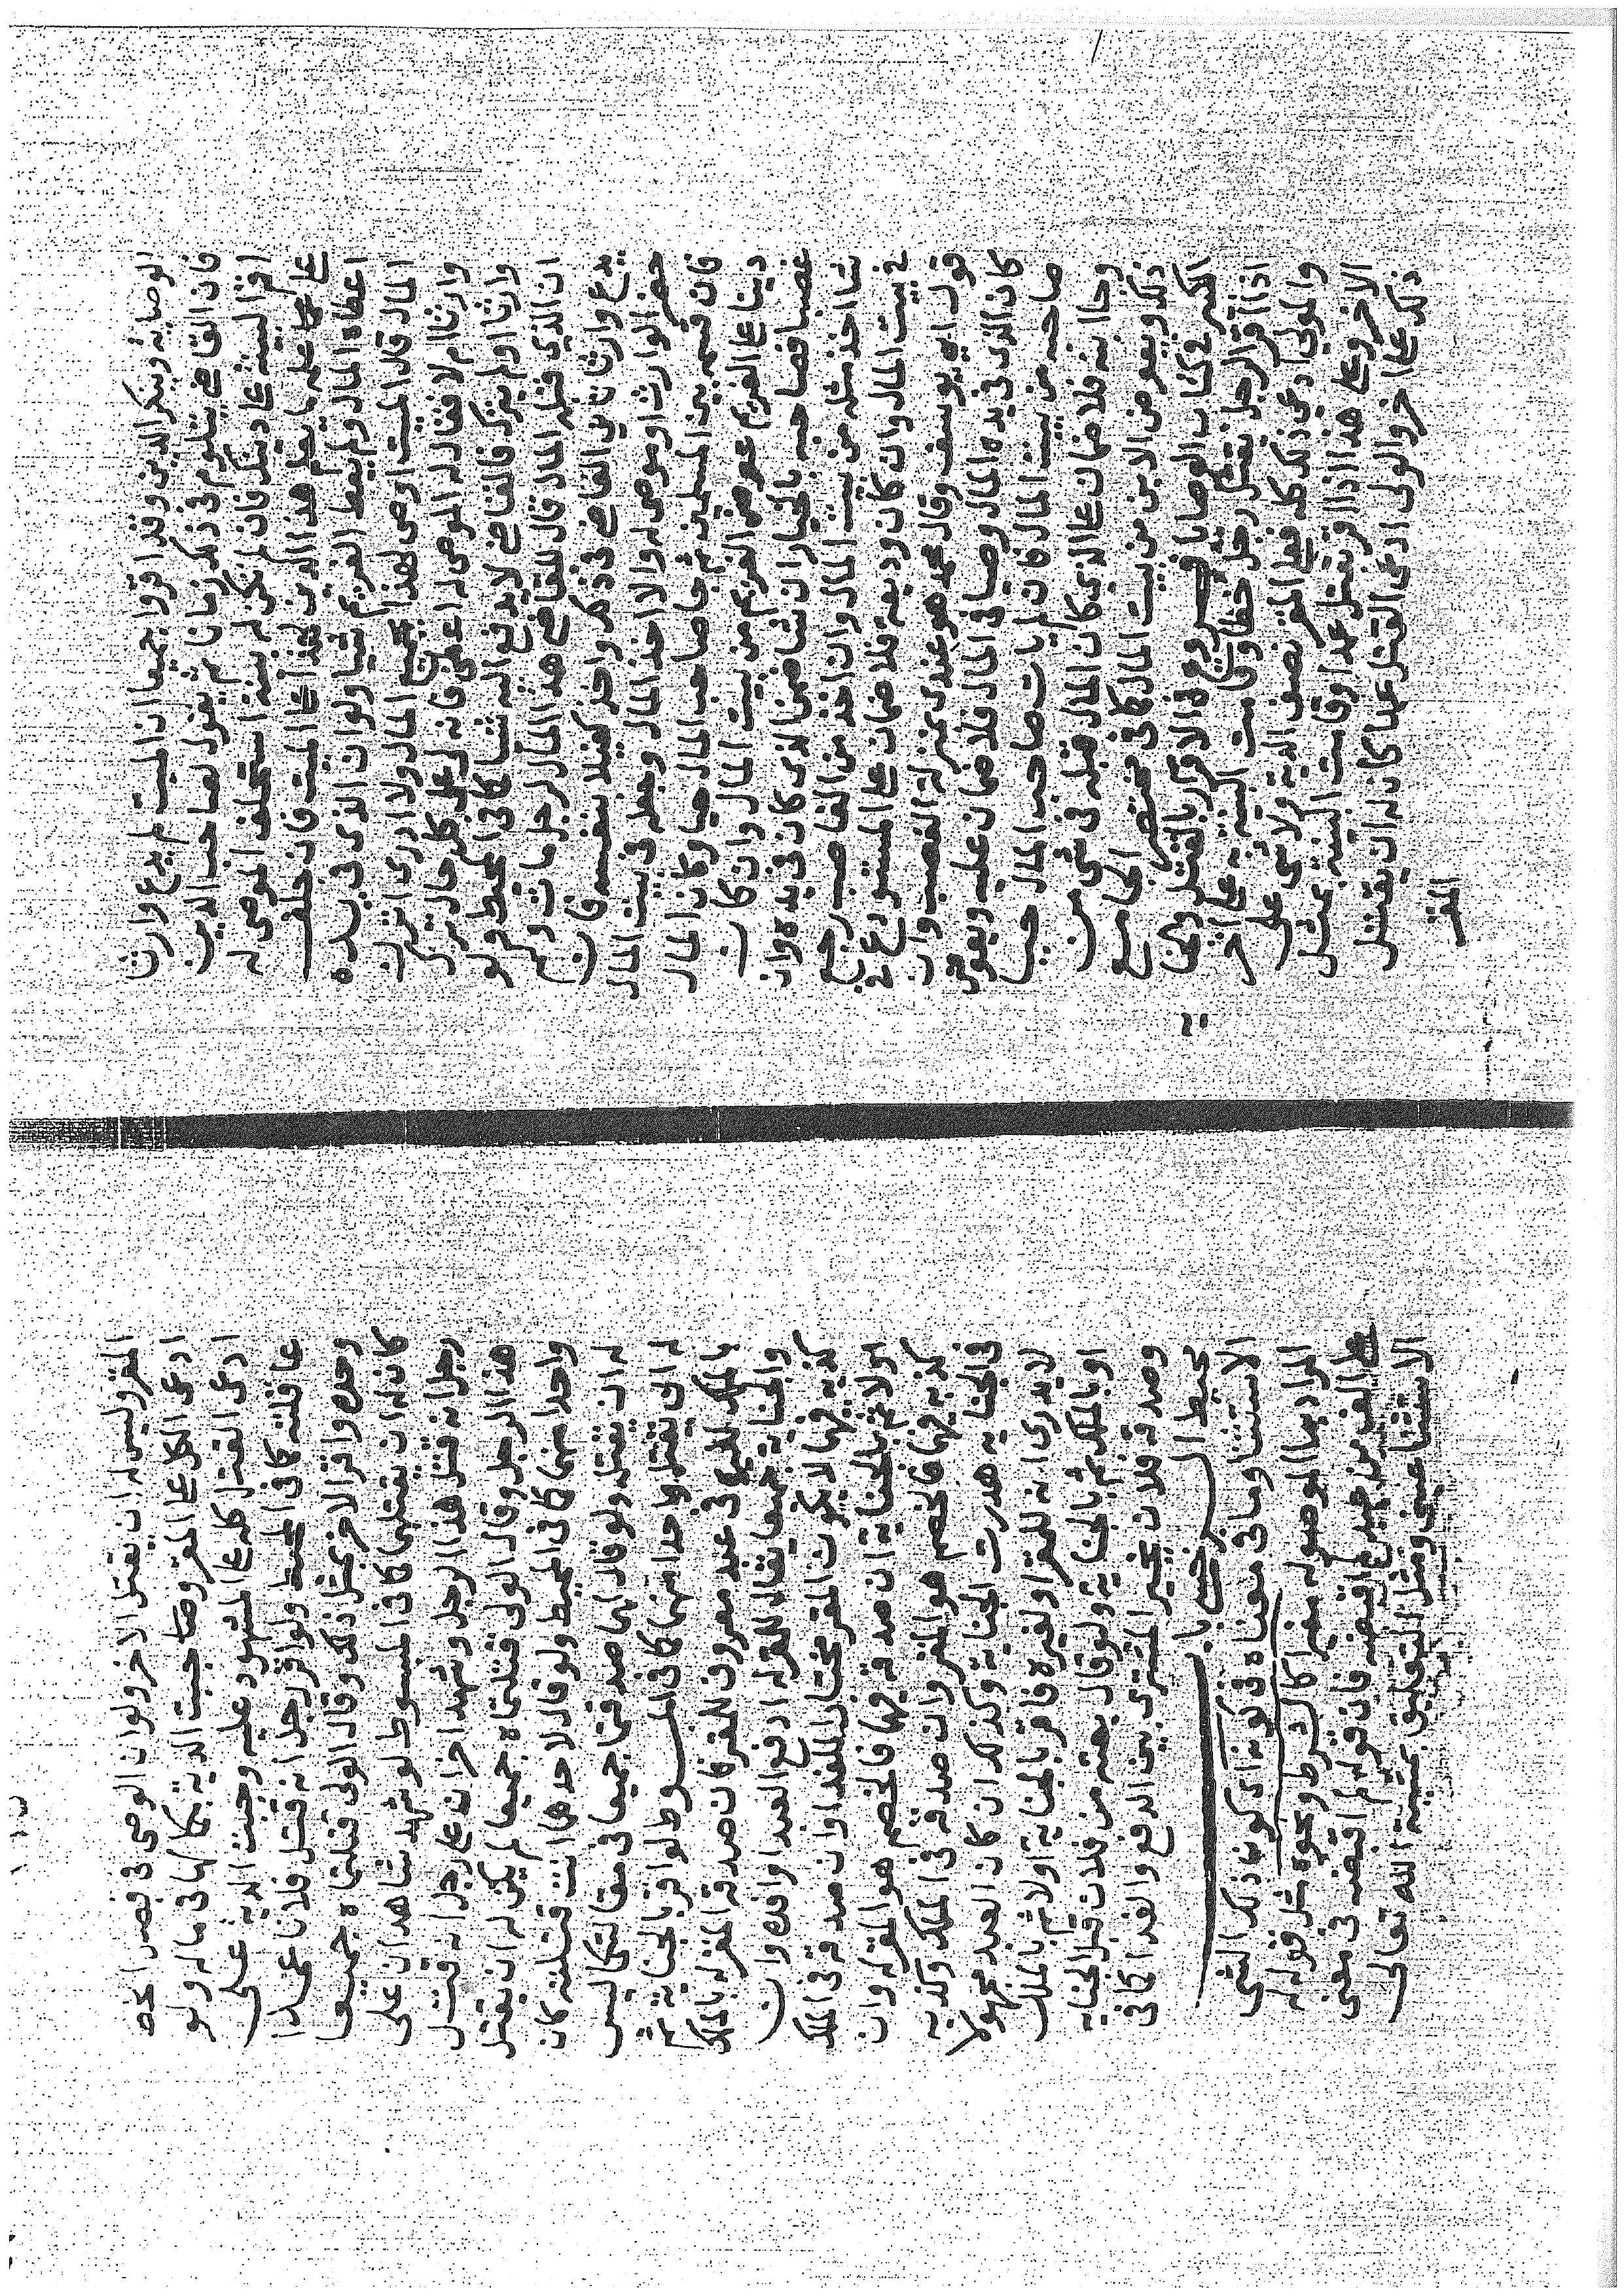 الوصاية وينكر الدين وقد اقروا جميعا ان الميت لم يدع وارثا
فان القاضي يتلوم في ذلك زمانا ثم يقول لصاحب الدين
اقم البينة على دينك فان لم تكن له بينة استحلف الموصى له
على علمه ما يعلم هذا الدين لهذا على الميت فان حلف
اعطاه المال ولم يعط الغريم شيا ولو ان الذي في يده
المال قال الميت اوصى لهذا بجميع المال ولا ادري اترك
وارثا ام لا فقال له الموصى له اعطني فانه لي على كل حال ترك
وارثا اولم يترك فالقاضي لا يدفع اليه شيا كذا في المحيط ولو
ان الذي قبله المال قال للقاضي هذا المال لرجل مات ولم
يدع وارثا تاني القاضي في ذلك واخذ كفيلا بنفسه فان
حضر الوارث او موصى له والا اخذ المال وجعله في بيت المال
فان قسمه بين المسلمين ثم جا صاحب المال حيا وكان المال
دينا على الغريم عوضه الغريم من بيت المال وان كان
غصبا فصاحبه بالخيار ان شا ضمن الذي كان في يده وان
شا اخذ مثله من بيت المال وان اخذ من الغاصب رجع
في بيت المال وان كان وديعة فلا ضمان على المستودع في
قول ابي يوسف وقال محمد هو عندي بمنزلة الغصب وان
كان الذي في يده المال وصيا في المال فلا ضمان عليه ويعوض
صاحبه من بيت المال فان لم يات صاحب المال حيا
وجا ابنه فلا ضمان على الذي كان المال قبله في شي من
ذلك ويعوض الابن من بيت المال كذا في مختصر الجامع
الكبير في كتاب الوصايا في الاقرار بالقتل والجنا
اذا اقر الرجل بقتل رجل خطا وقامت البينة به على اخر
والولي ادعى ذلك كله فعلى المقر نصف الدية ولا شي على
الاخر وعلى هذا اذا اقر بقتل عمدا وقامت البينة بمثل
ذلك على اخر والولي ادعى القتل عليهما كان له ان يقتل
المقر
المقر وليس له ان يقتل الاخر ولو ان الوصي في فصل الخطا
ادعى الكل على المقر وحده وجبت الدية بكمالها في ماله ولو
ادعى القتل كله على المشهود عليه وجبت الدية على
عاقلته كذا في المحيط ولو اقر رجل انه قتل فلانا عمدا
وحده واقر الاخر بمثل ذلك وقال الولي قتلتماه جميعا
كان له ان يقتلهما كذا في المبسوط لو شهد شاهدان على
رجل انه قتل هذا الرجل وشهد اخران على رجل انه قتل
هذا الرجل وقال الولي قتلتماه جميعا لم يكن له ان يقتل
واحدا منهما كذا في المحيط ولو قال لاحدهما انت قتلته كان
له ان يقتله ولو قال لهما صدقتما جميعا في مقالتكما ليس
له ان يقتل واحدا منهما كذا في المبسوط لو اقر بالجناية ثم
بالملك للغير في عبد معروف للمقر فان صدقه المقر له بالملك
والجناية جميعا يقال للمقر له ادفع العبد او افده وان
كذبه فيهما لا يكون المقر مختارا للفدا وان صدقه في الملك
اولا ثم بالجناية ان صدقه فيهما فالخصم هو المقر له وان
كذبه فيهما فالخصم هو المقر وان صدقه في الملك وكذبه
في الجناية هدرت الجناية وكذلك ان كان العبد مجهولا
لا يدرى انه للمقر او لغيره فاقر بالجناية اولا ثم بالملك
او بالملك ثم بالجناية ولو قال بعته من فلان قبل الجناية
وصدقه فلان يخير المشتري بين الدفع والفدا كذا في
محيط السرخسي باب
الاستثنا وما في معناه في كونه اي كون ذكر الشي
المراد بهما الموصوله مغيرا كالشرط ونحوه مثل قوله له
علي الف من ثمن عبد لم اقبضه فان قوله لم اقبضه في معنى
الاستثنا ومثل التعليق بمشيئة الله تعالى